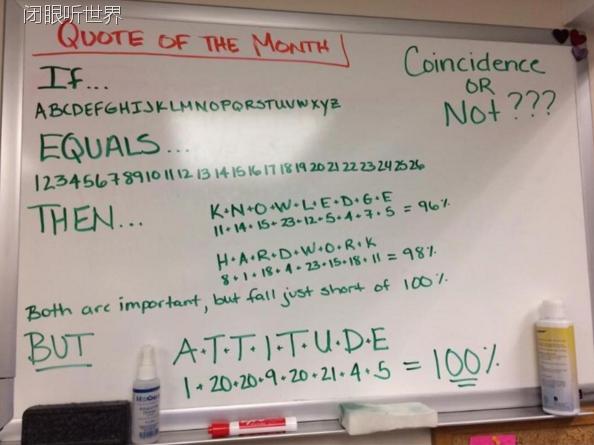 闭眼听世界
QUOTE OF THE MONTH
Coincidence
OR
Not ???
If...
ABCDEFGHIJKLMNOPQRSTUVWXYZ
EQUALS...
1 2 3 4 5 6 7 8 9 10 11 12 13 14 15 16 17 18 19 20 21 22 23 24 25 26
THEN...
K+N+O+W+L+E+D+G+E
11+14+15+23+12+5+4+7+5 = 96%
H+A+R+D+W+O+R+K
8+1+18+4+23+15+18+11 = 98%
Both are important, but fall just short of 100%
BUT
A+T+T+I+T+U+D+E
1+20+20+9+20+21+4+5 = 100%